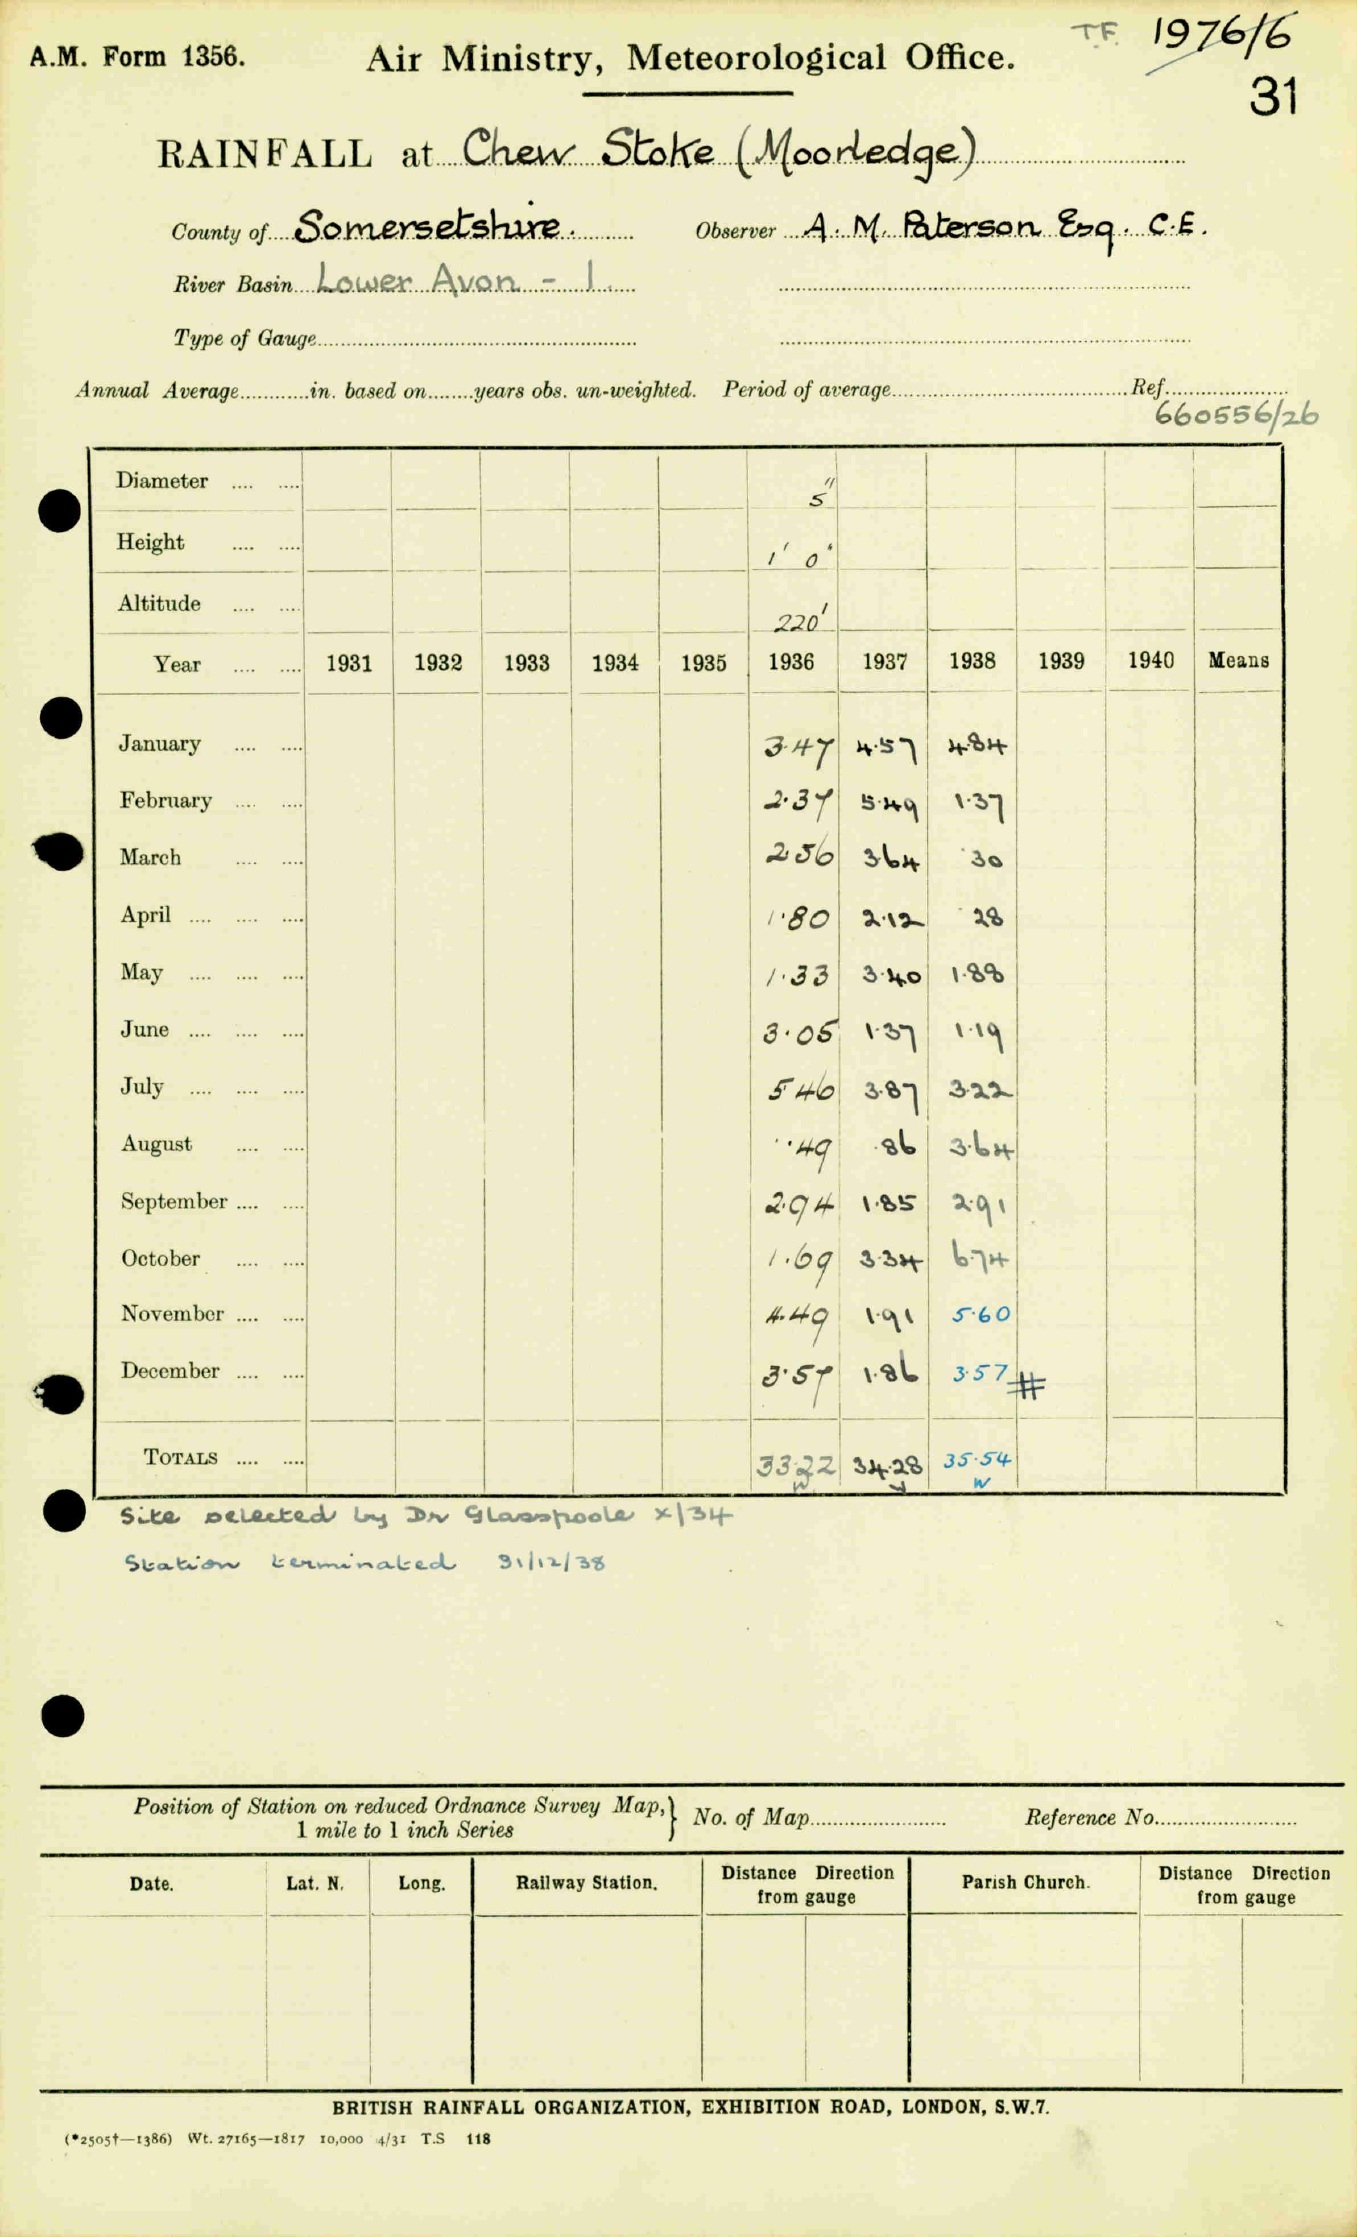 T.F. 1976/6
A.M. Form 1356. Air Ministry, Meteorological Office.
31
RAINFALL at Chew Stoke (Moorledge)
County of Somersetshire. Observer A. M. Paterson Esq. C.E.
River Basin Lower Avon - 1.
Type of Gauge
Annual Average in. based on years obs. un-weighted. Period of average Ref.
660556/26
Diameter 5"
Height 1' 0"
Altitude 220'
Year 1931 1932 1933 1934 1935 1936 1937 1938 1939 1940 Means
January 3.47 4.57 4.84
February 2.37 5.49 1.37
March 2.56 3.64 .30
April 1.80 2.12 .28
May 1.33 3.40 1.88
June 3.05 1.37 1.19
July 5.46 3.87 3.22
August .49 .86 3.64
September 2.94 1.85 2.91
October 1.69 3.34 6.74
November 4.49 1.91 5.60
December 3.57 1.86 3.57 #
TOTALS 33.22 34.28 35.54
w w w
Site selected by Dr Glasspoole x/34
Station terminated 31/12/38
Position of Station on reduced Ordnance Survey Map, 1 mile to 1 inch Series } No. of Map Reference No.
Date. Lat. N. Long. Railway Station. Distance Direction from gauge Parish Church. Distance Direction from gauge
BRITISH RAINFALL ORGANIZATION, EXHIBITION ROAD, LONDON, S.W.7.
(*2505†—1386) Wt. 27165—1817 10,000 4/31 T.S 118